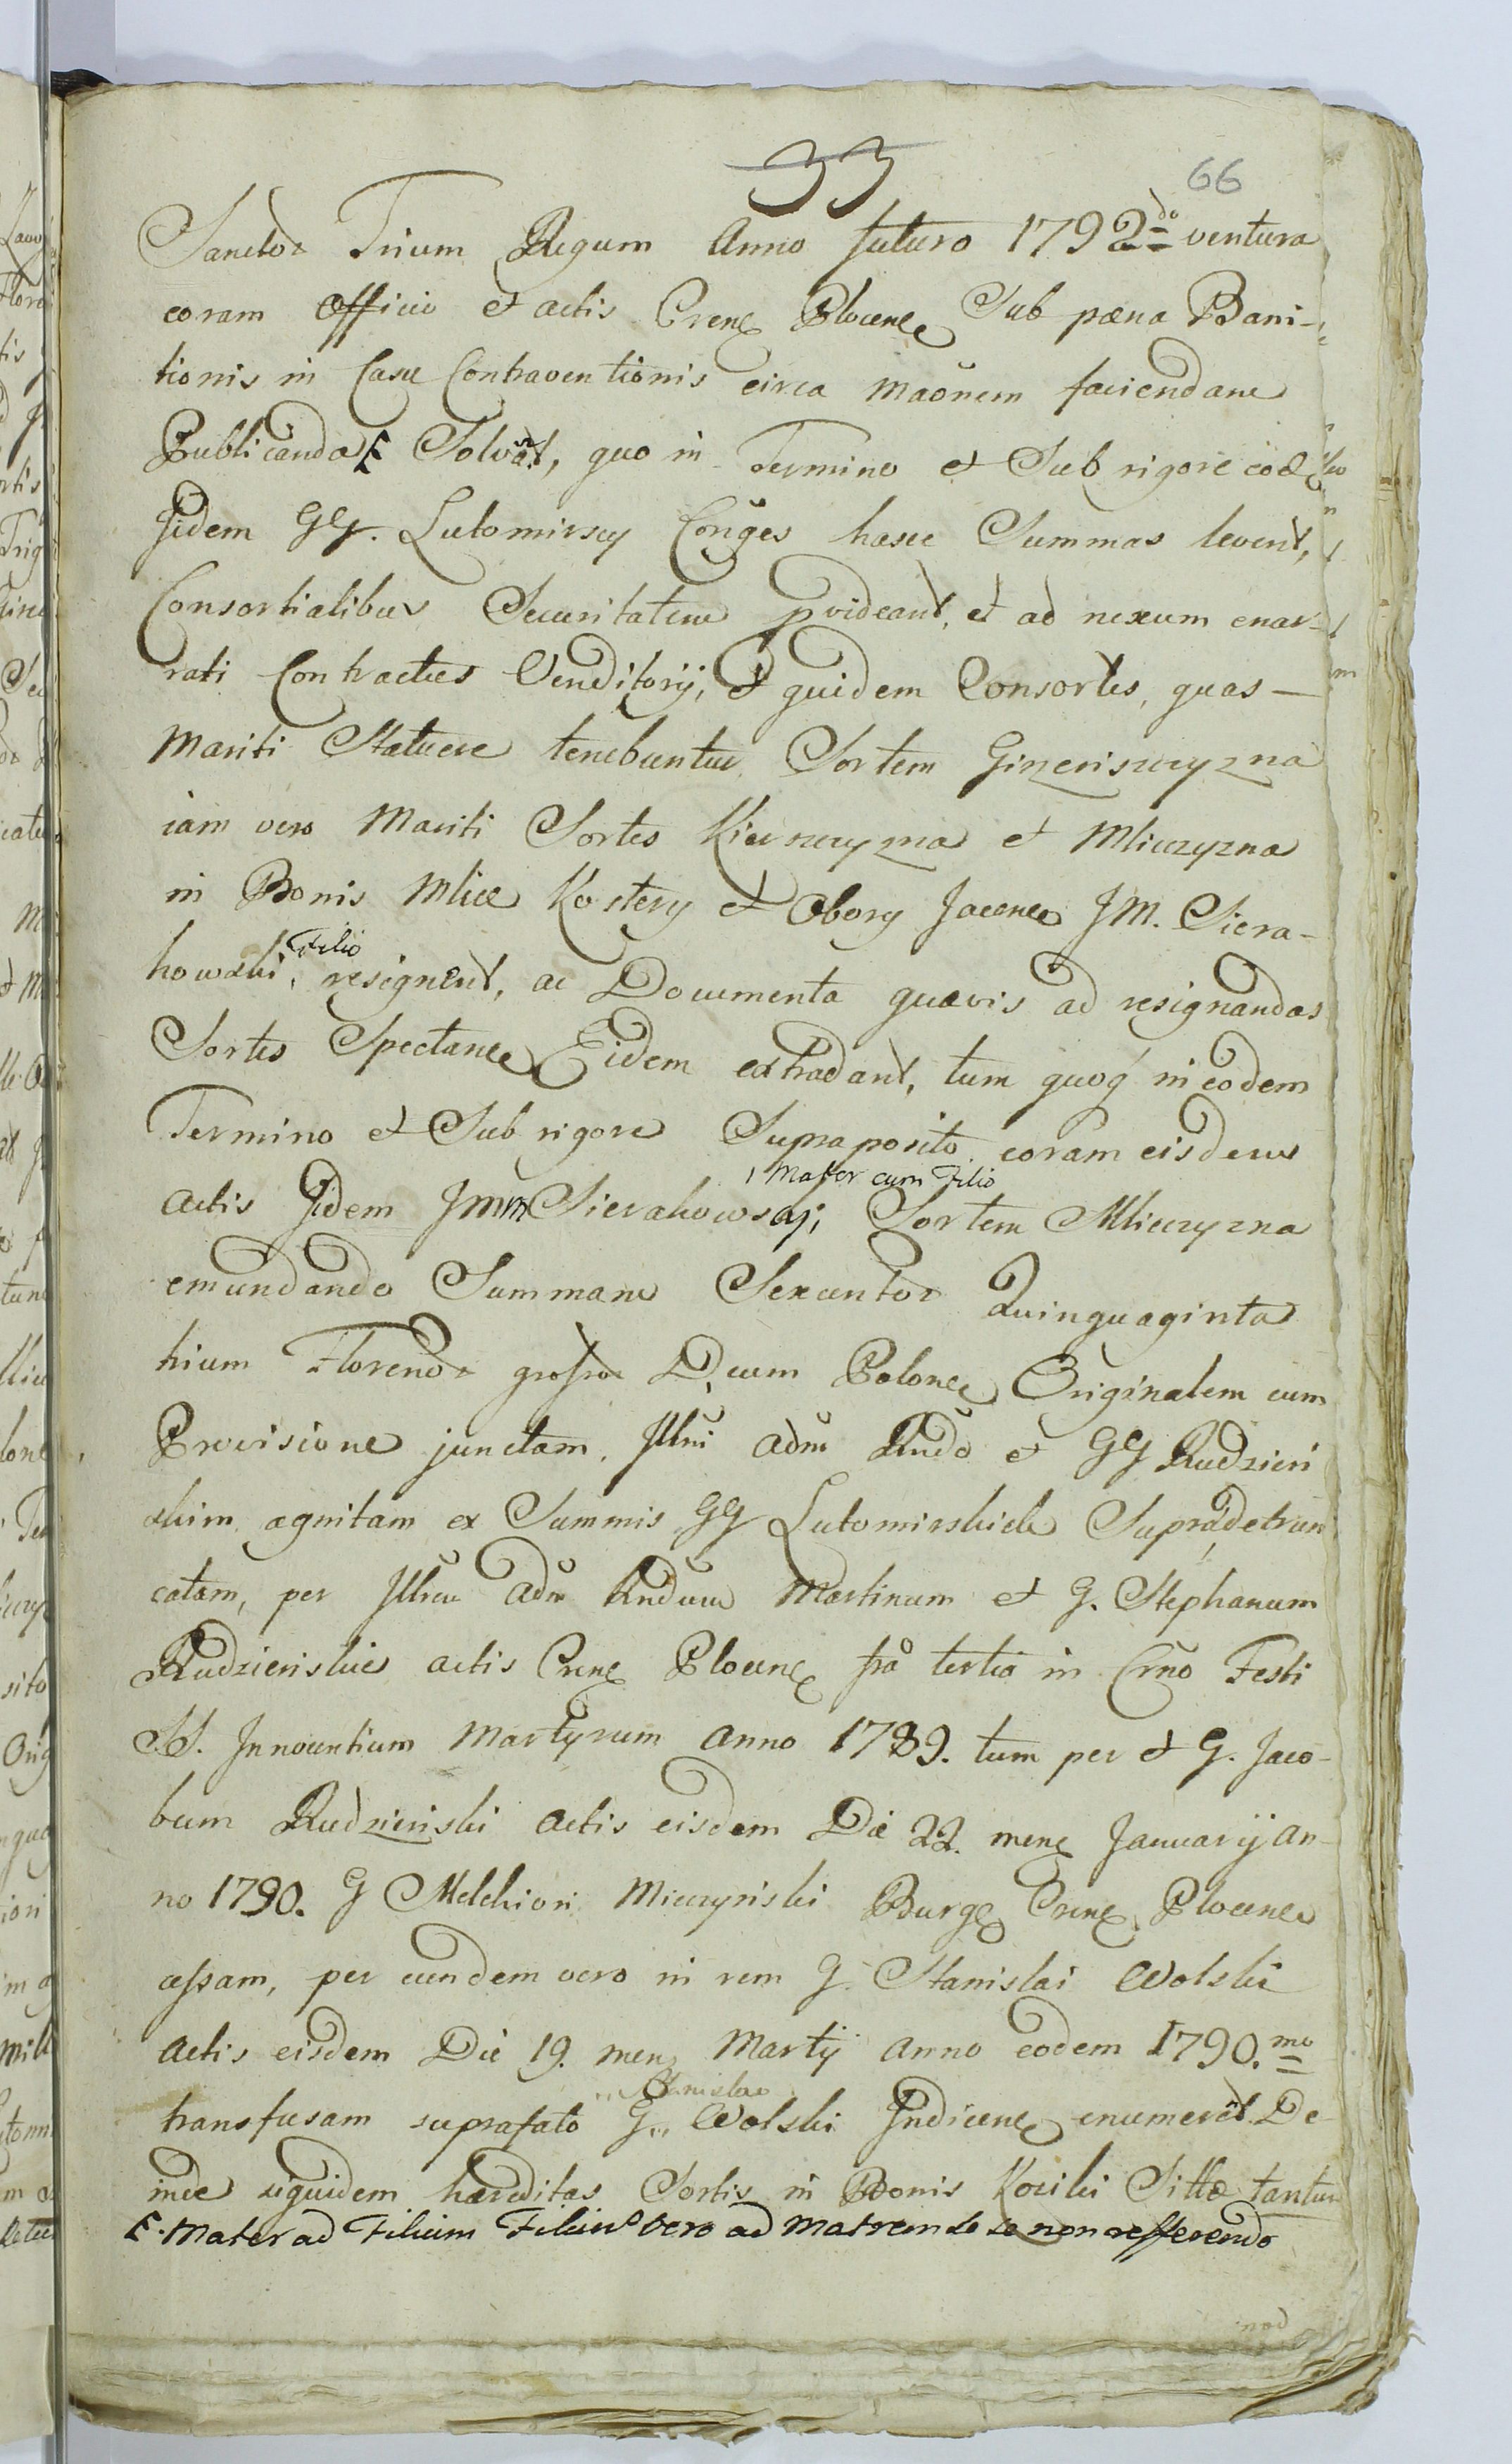 33
66
Sanctor Trium Regum Anno futuro 1792do ventura
coram Officio et actis Crens Plocens Sub pæna Bani-
tionis in Casu Contraventionis circa maõnem faciendam
Publicanda Solvãt, quo in Termino et Sub rigore eod
Jidem GG. Lutomirscy Conges hasce Summas levent,
Consortialibus Securitatem pvideant, et ad nexum enar-
rati Contractus Venditorij, et quidem Consortes, quas —
Mariti Statuere tenebuntur Sortem Ginzeriszczyzna
iam vero Mariti Sortes Kierszczyzna et Mliczyzna
in Bonis Mlice Kostery et Obory Jacens JM. Siera-
kowski, Filio resignent, ac Documenta quævis ad resignandas
Sortes Spectane Eidem extradant, tum quoq in eodem
Termino et Sub rigore Supra posito coram eisdem
actis Jidem JMM Sierakowscy, Mater cum Filio Sortem Mliczyzna
emundando Summam Sexcentor Quinquaginta
trium Florenor grossor D, cum Polone Originalem cum
Provisione junctam, Illmi Adm Rndo et GG Rudzień
skim agnitam ex Summis GG Lutomirskich Supra, detrun
catam, per Illum Adm Rndum Martinum et G. Stephanum
Rudzieńskie actis Crens Plocens fra tertia in Crno Festi
SS. Innocentium Martyrum Anno 1789. tum per et G. Jaco-
bum Rudzieński actis eisdem Die 22. mens Januarij an-
no 1790. G Melchiori Mieczyński Burgs Crens Plocens
cessam, per eundem vero in rem G. Stanislai Wolski
actis eisdem Die 19. mens Martij anno eodem 1790.mo
transfusam suprafato G. Stanislao Wolski Judicens enumeret. De-
inde siquidem hæreditas Sortis in Bonis Kosiki Sittæ tantum
F. Mater ad Filium Filius vero ad Matrem se se non refferendo